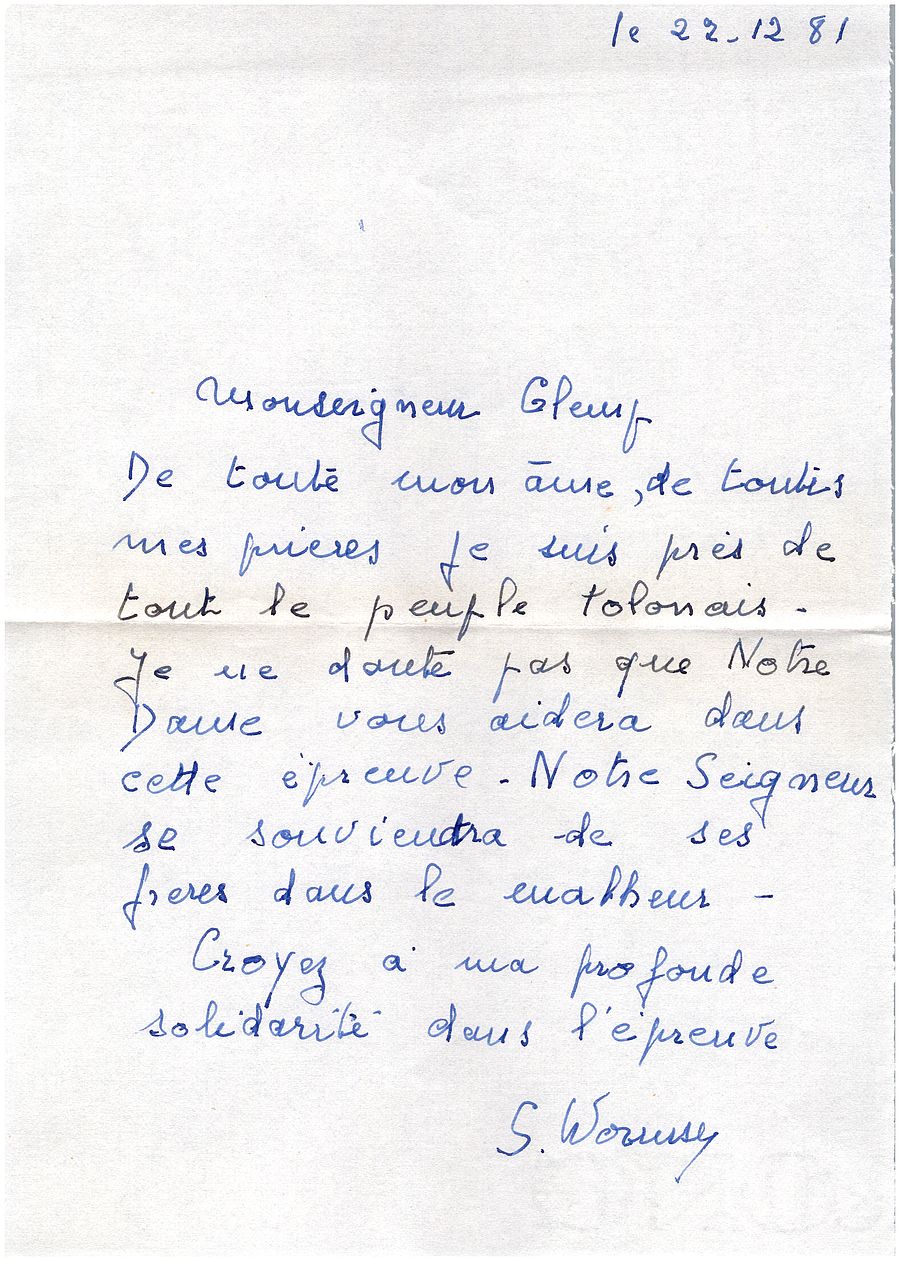 le 22-12 81
Monseigneur Glemp
De toute mon âme, de toutes
mes prieres je suis près de
tout le peuple Polonais -
Je ne doute pas que Notre
Dame vous aidera dans
cette épreuve - Notre Seigneur
se souviendra de ses
freres dans le malheur -
Croyez a ma profonde
solidarité dans l'épreuve
S.